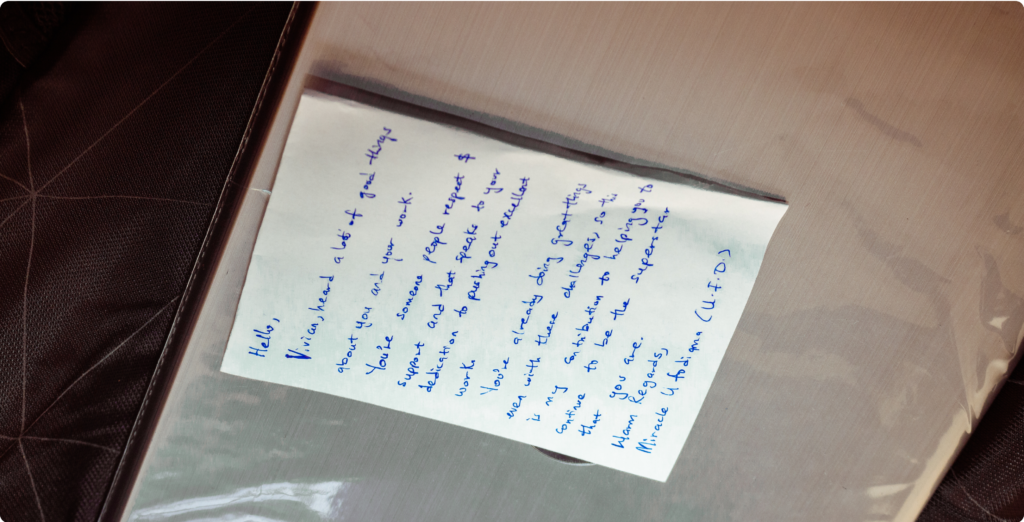 Hello,
Vivian, heard a lots of good things
about you and your work.
You're someone people respect &
support and that speaks to your
dedication to pushing out excellent
work.
You're already doing great things
even with there challenges, so this
is my contribution to helping you to
continue to be the superstar
that you are.
Warm Regards,
Miracle (U.I.D.)